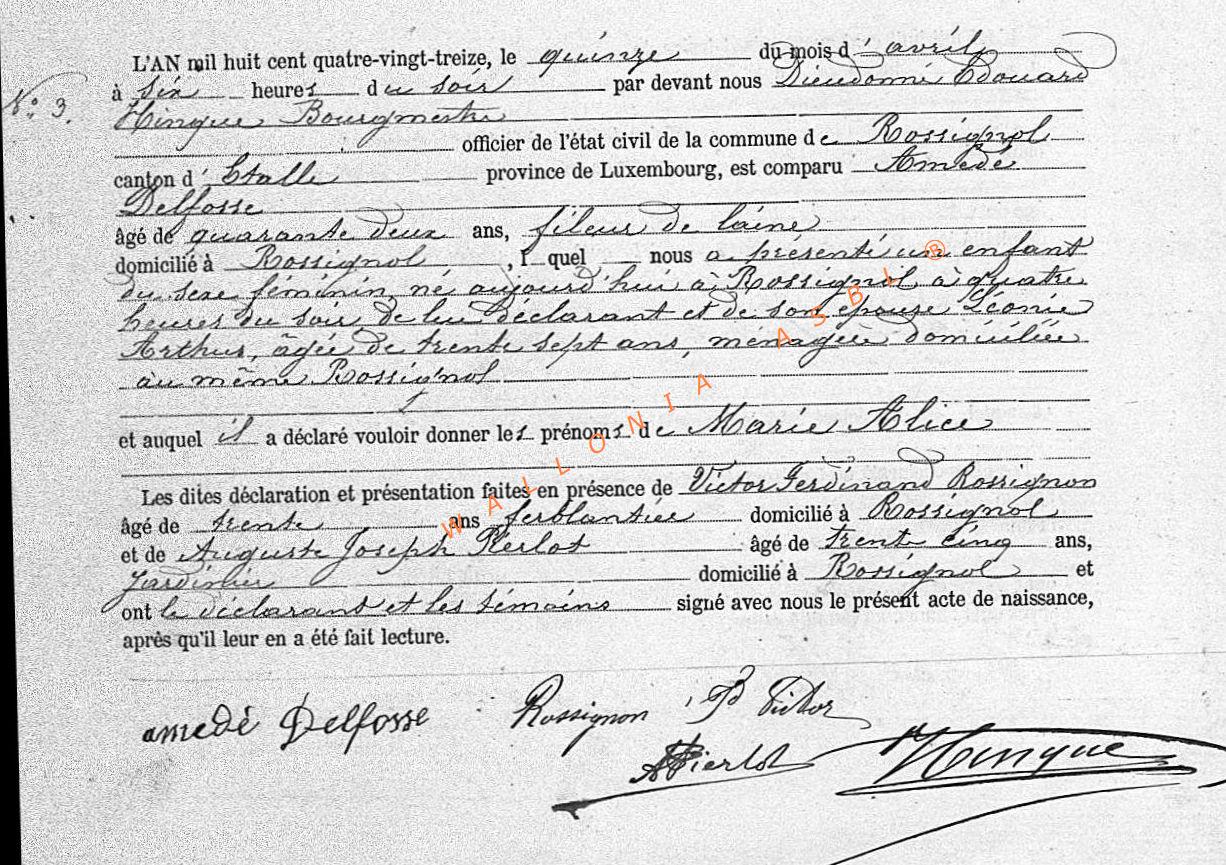 L'AN mil huit cent quatre-vingt-treize, le quinze du mois d'avril
à six heures du soir par devant nous Dieudonné Edouard
N° 3.
Hinque Bourgmestre
officier de l'état civil de la commune de Rossignol
canton d'Etalle province de Luxembourg, est comparu Amédé
Delfosse
âgé de quarante deux ans, fileur de laine
domicilié à Rossignol, lequel nous a présenté un enfant
du sexe féminin, né aujourd'hui à Rossignol, à quatre
heures du soir de lui déclarant et de son épouse Léonie
Arthus, âgée de trente sept ans, ménagère domiciliée
au même Rossignol
et auquel il a déclaré vouloir donner les prénoms de Marie Alice
Les dites déclaration et présentation faites en présence de Victor Ferdinand Rossignon
âgé de trente ans ferblantier domicilié à Rossignol
et de Auguste Joseph Pierlot âgé de trente cinq ans,
Jardinier domicilié à Rossignol et
ont le déclarant et les témoins signé avec nous le présent acte de naissance,
après qu'il leur en a été fait lecture.
amedé Delfosse Rossignon Victor
APierlot Hinque
WALLONIA ASBL ®